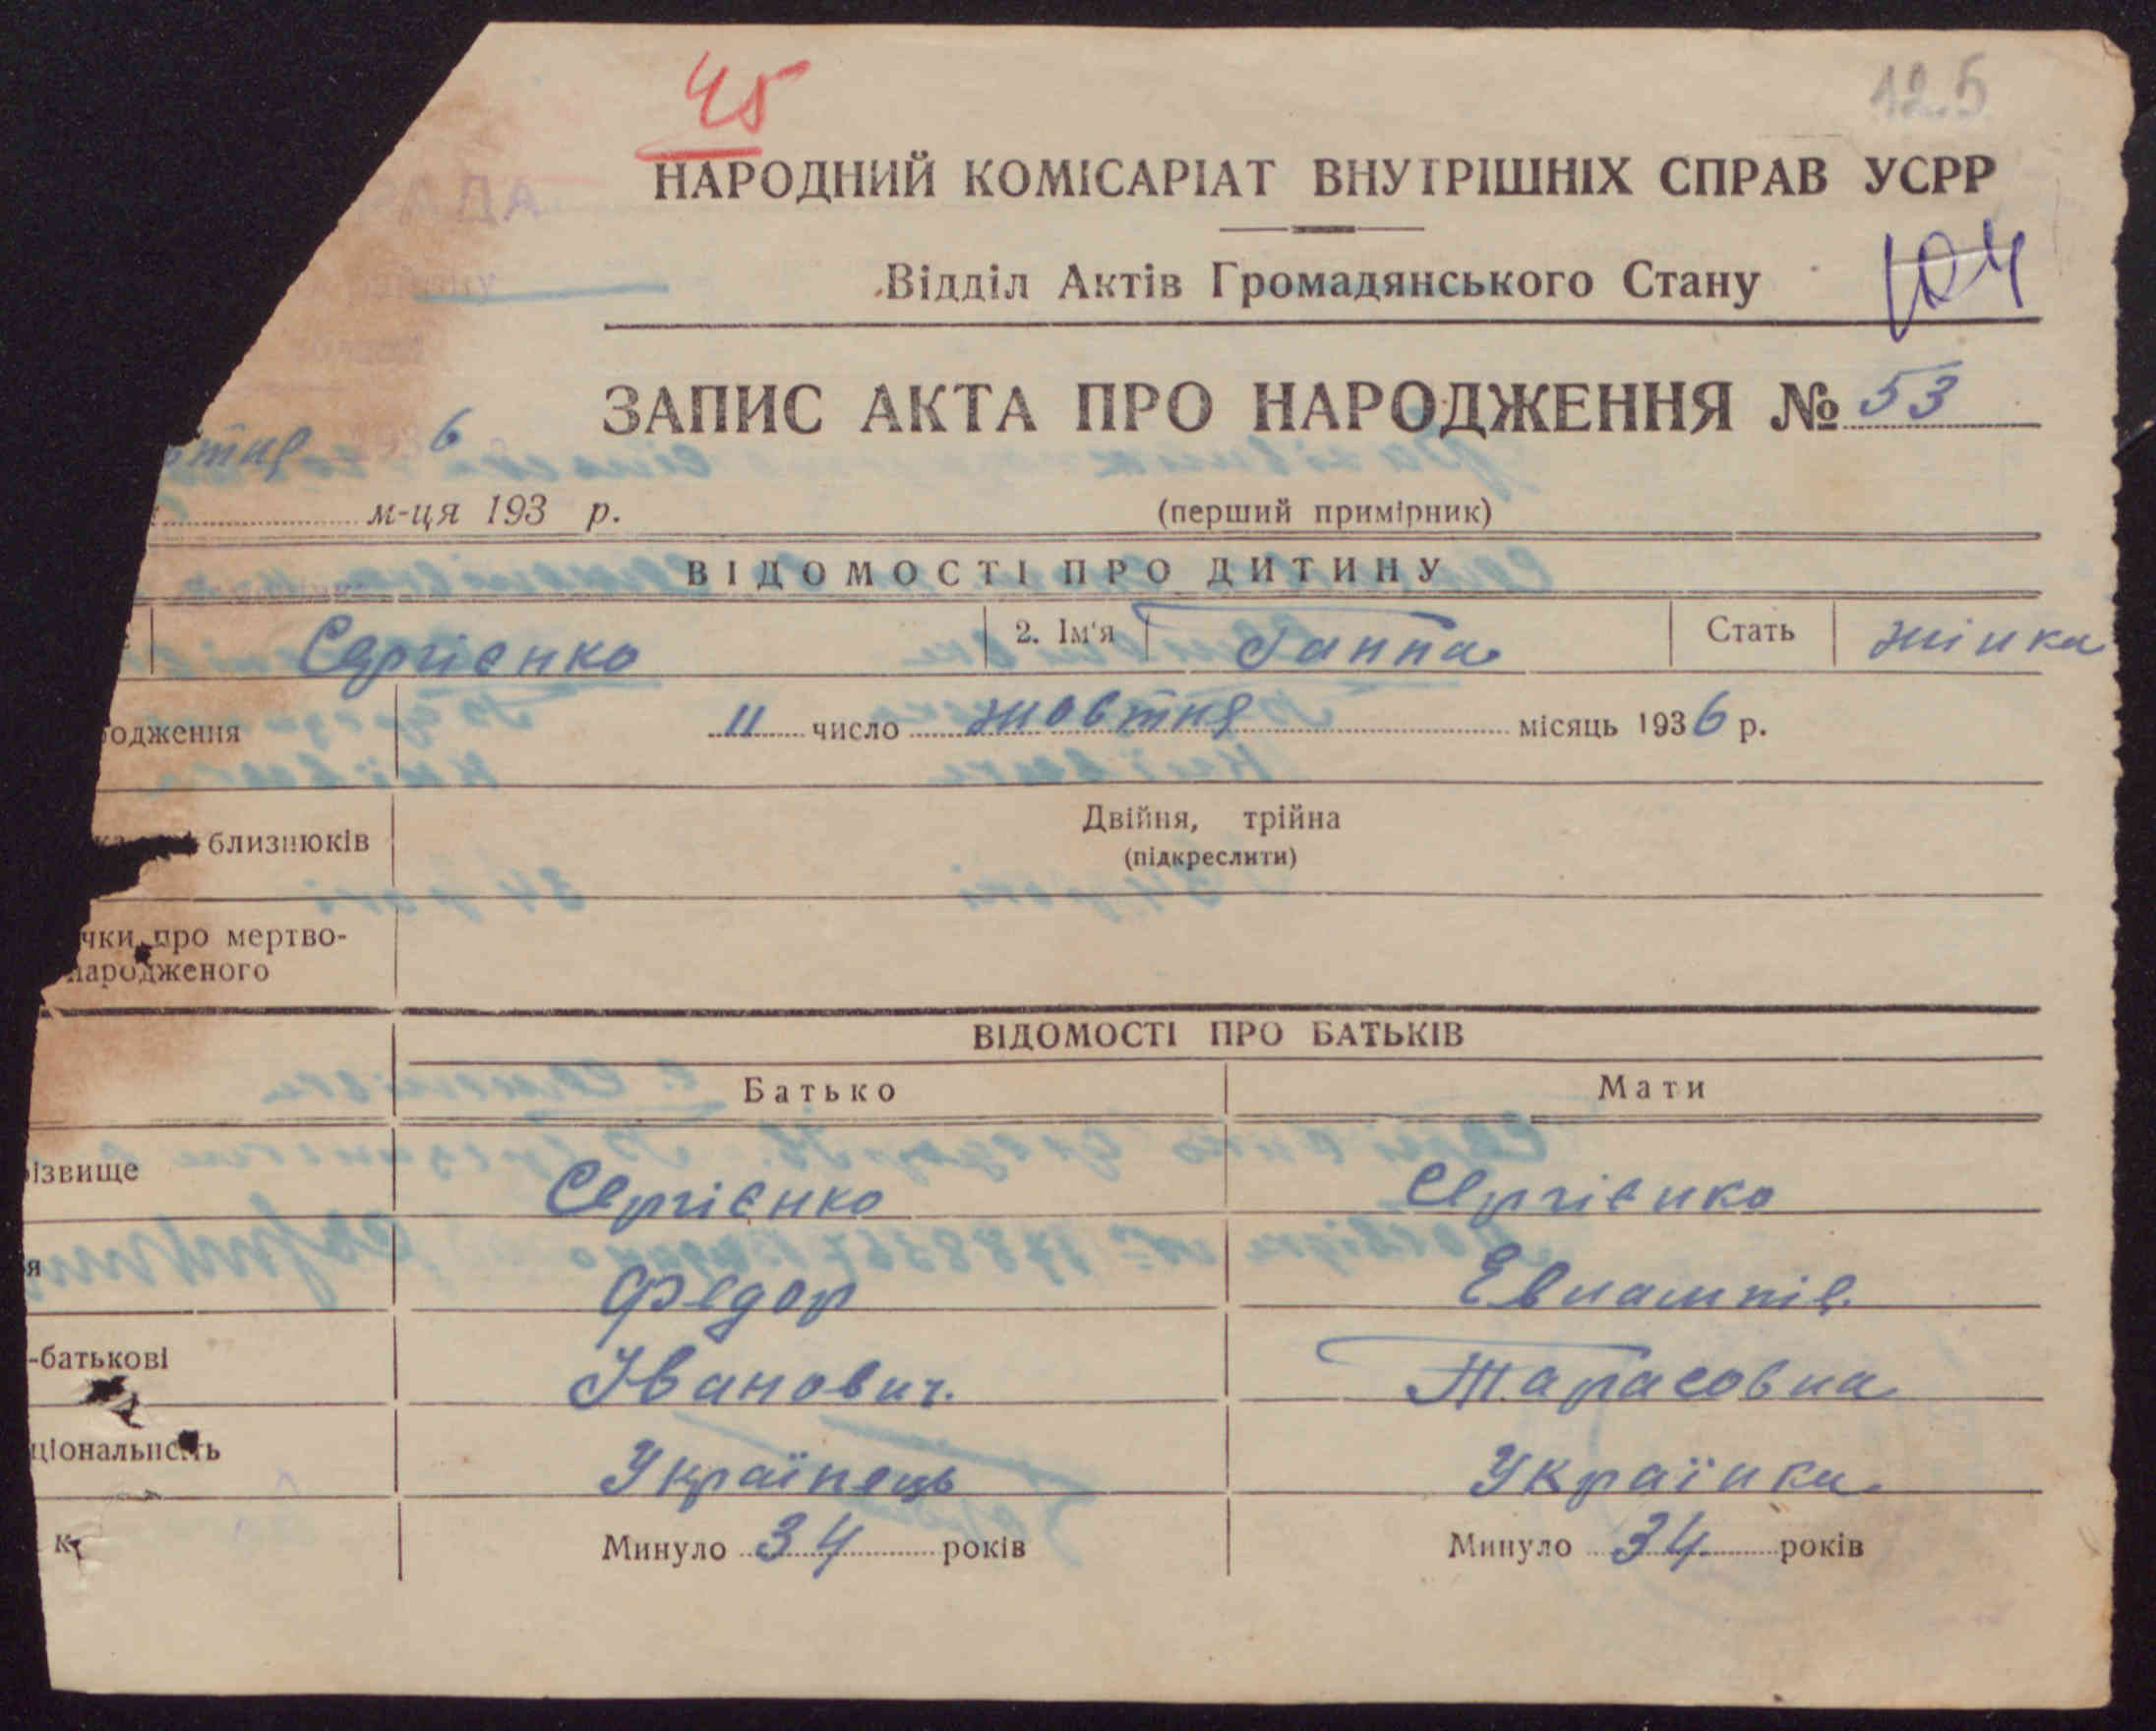 45
125
НАРОДНИЙ КОМІСАРІАТ ВНУТРІШНІХ СПРАВ УСРР
РАДА
Відділ Актів Громадянського Стану
104
ЗАПИС АКТА ПРО НАРОДЖЕННЯ № 53
втня 6
м-ця 193 р.
(перший примірник)
ВІДОМОСТІ ПРО ДИТИНУ
Сергієнко 2. Ім'я Ганна Стать жінка
одження 11 число жовтня місяць 1936 р.
близнюків Двійня, трійна
(підкреслити)
чки про мертво-
народженого
ВІДОМОСТІ ПРО БАТЬКІВ
Батько Мати
ізвище Сергієнко Сергієнко
я Федор
-батькові Іванович. Тарасовна
ціональність Українець Українка
к Минуло 34 років Минуло 34 років